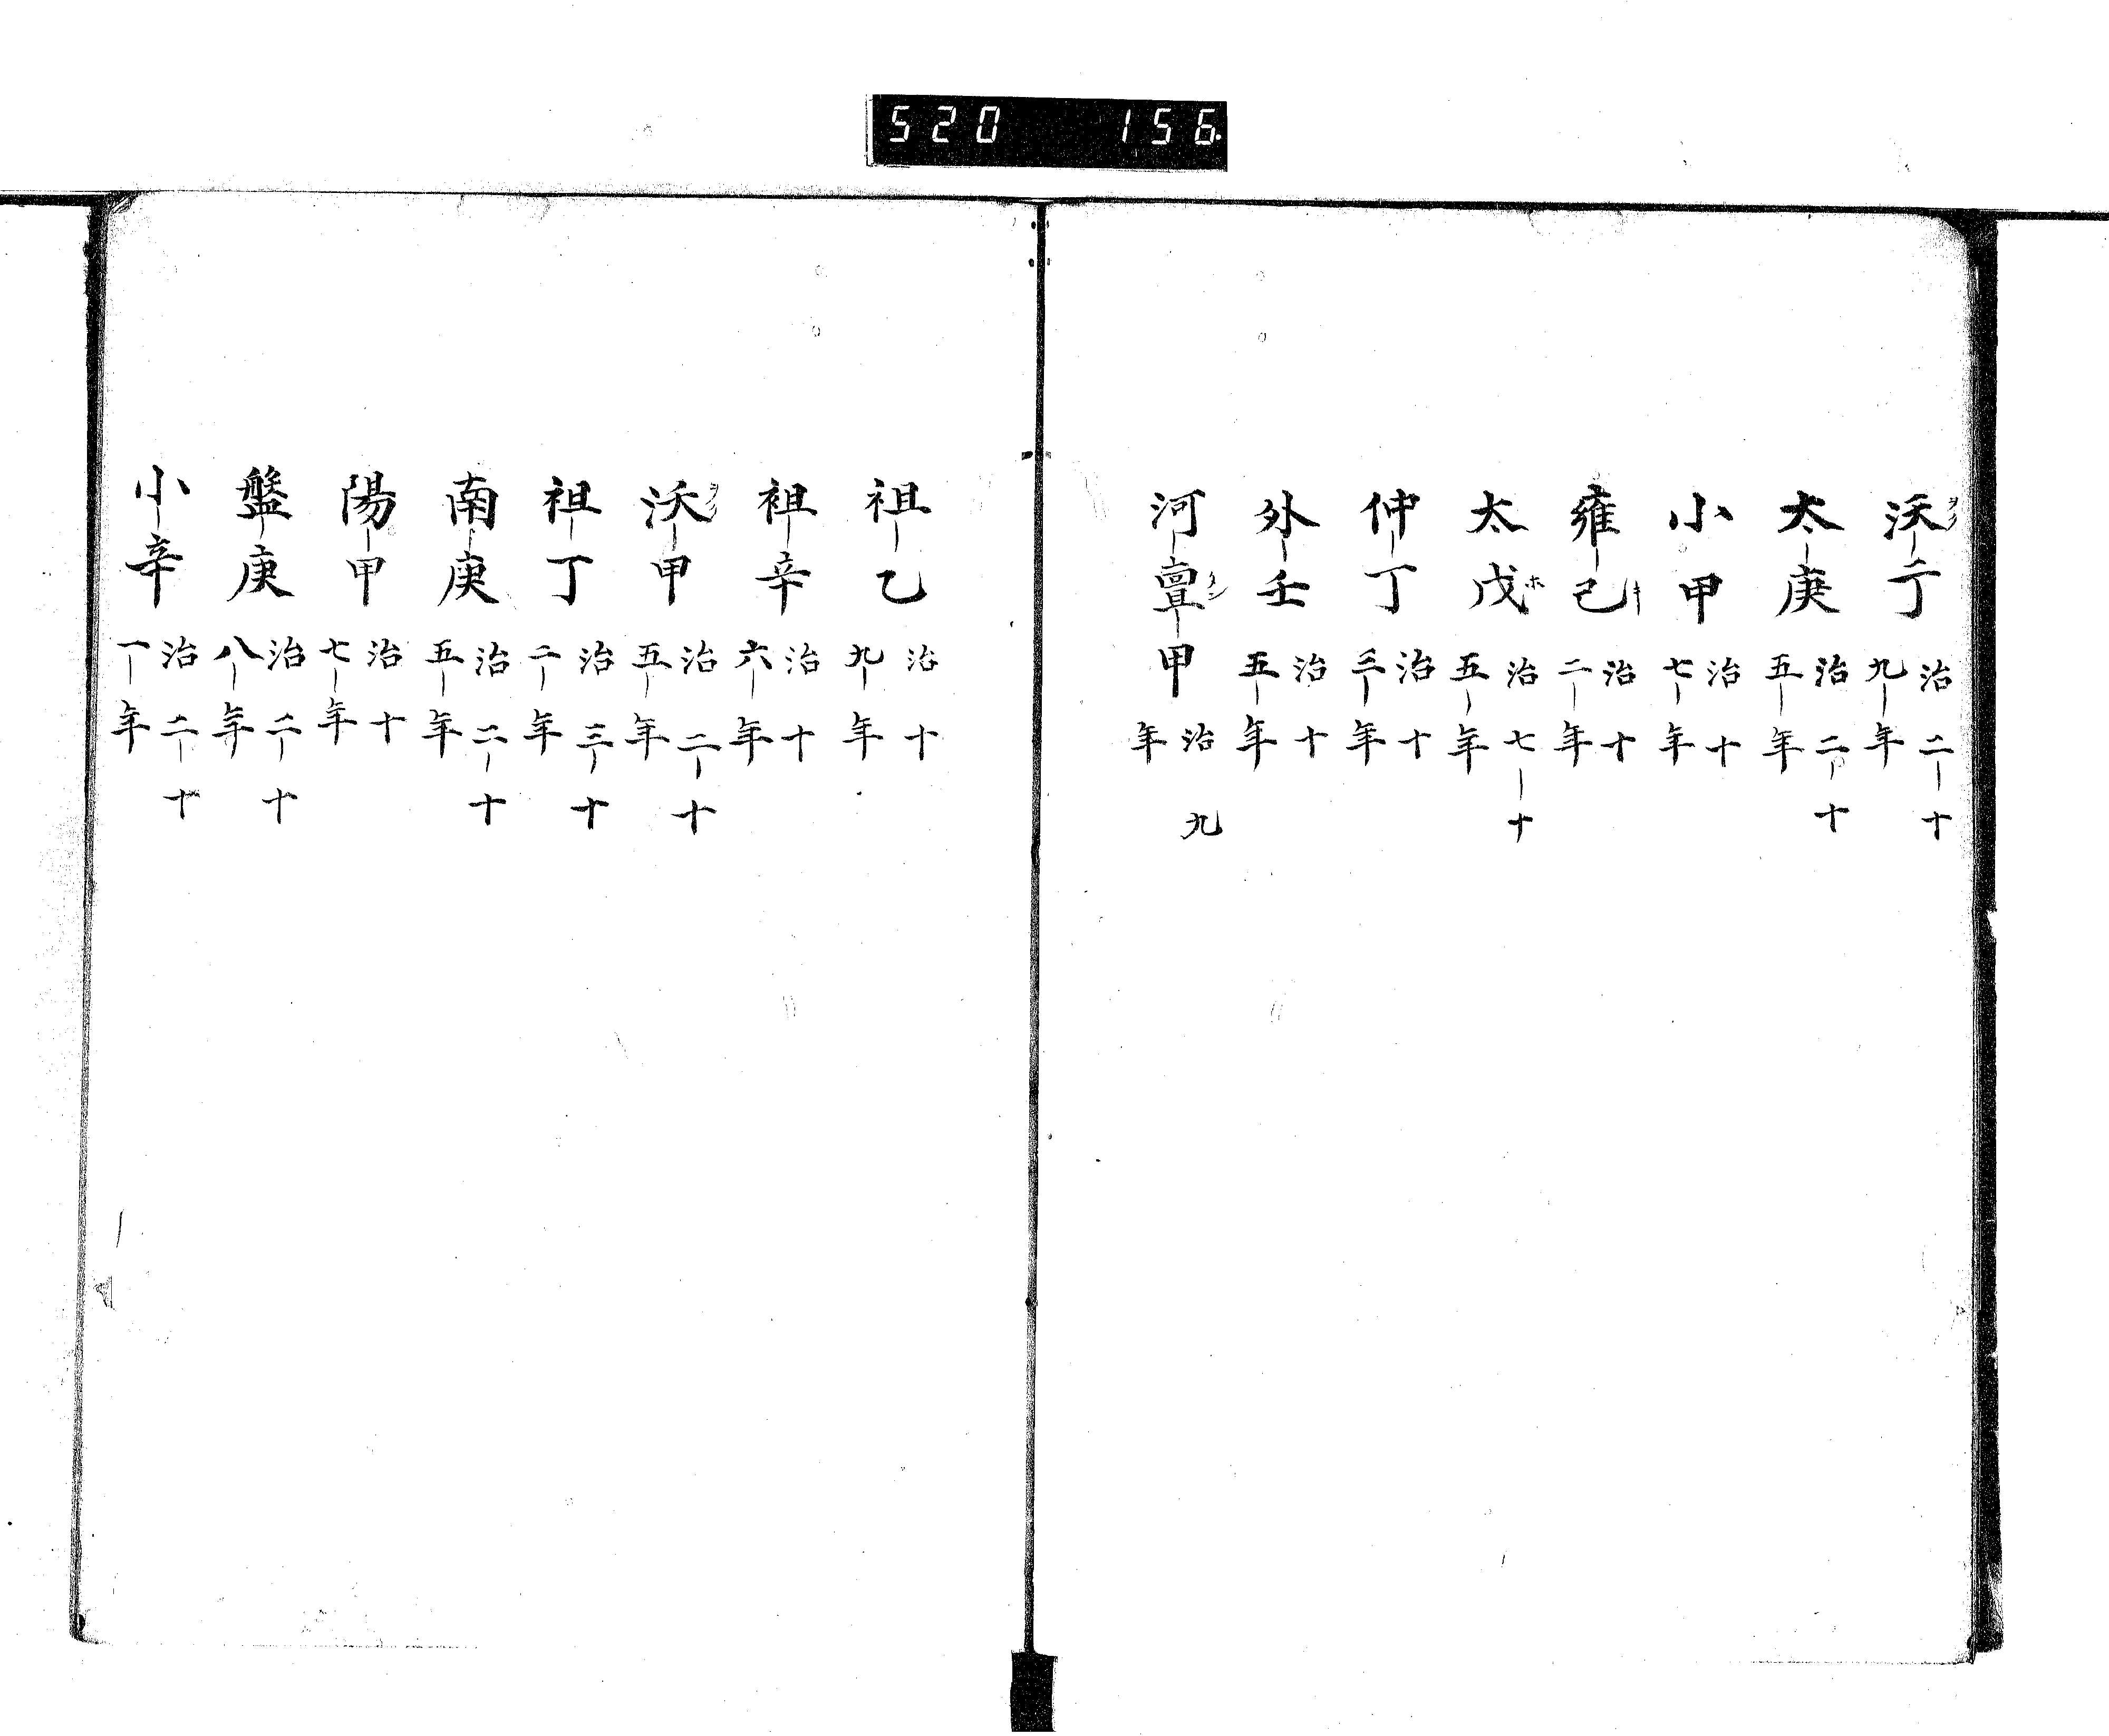 520 156
沃丁 ヲク 治二十九年
太庚 治二十五年
小甲 治十七年
雍己 キ 治十二年
太戊 ホ 治七十五年
仲丁 治十三年
外壬 治十五年
河亶甲 タン 治九年
祖乙 治十九年
祖辛 治十六年
沃甲 治二十五年
祖丁 治三十二年
南庚 治二十五年
陽甲 治十七年
盤庚 治二十八年
小辛 治二十一年